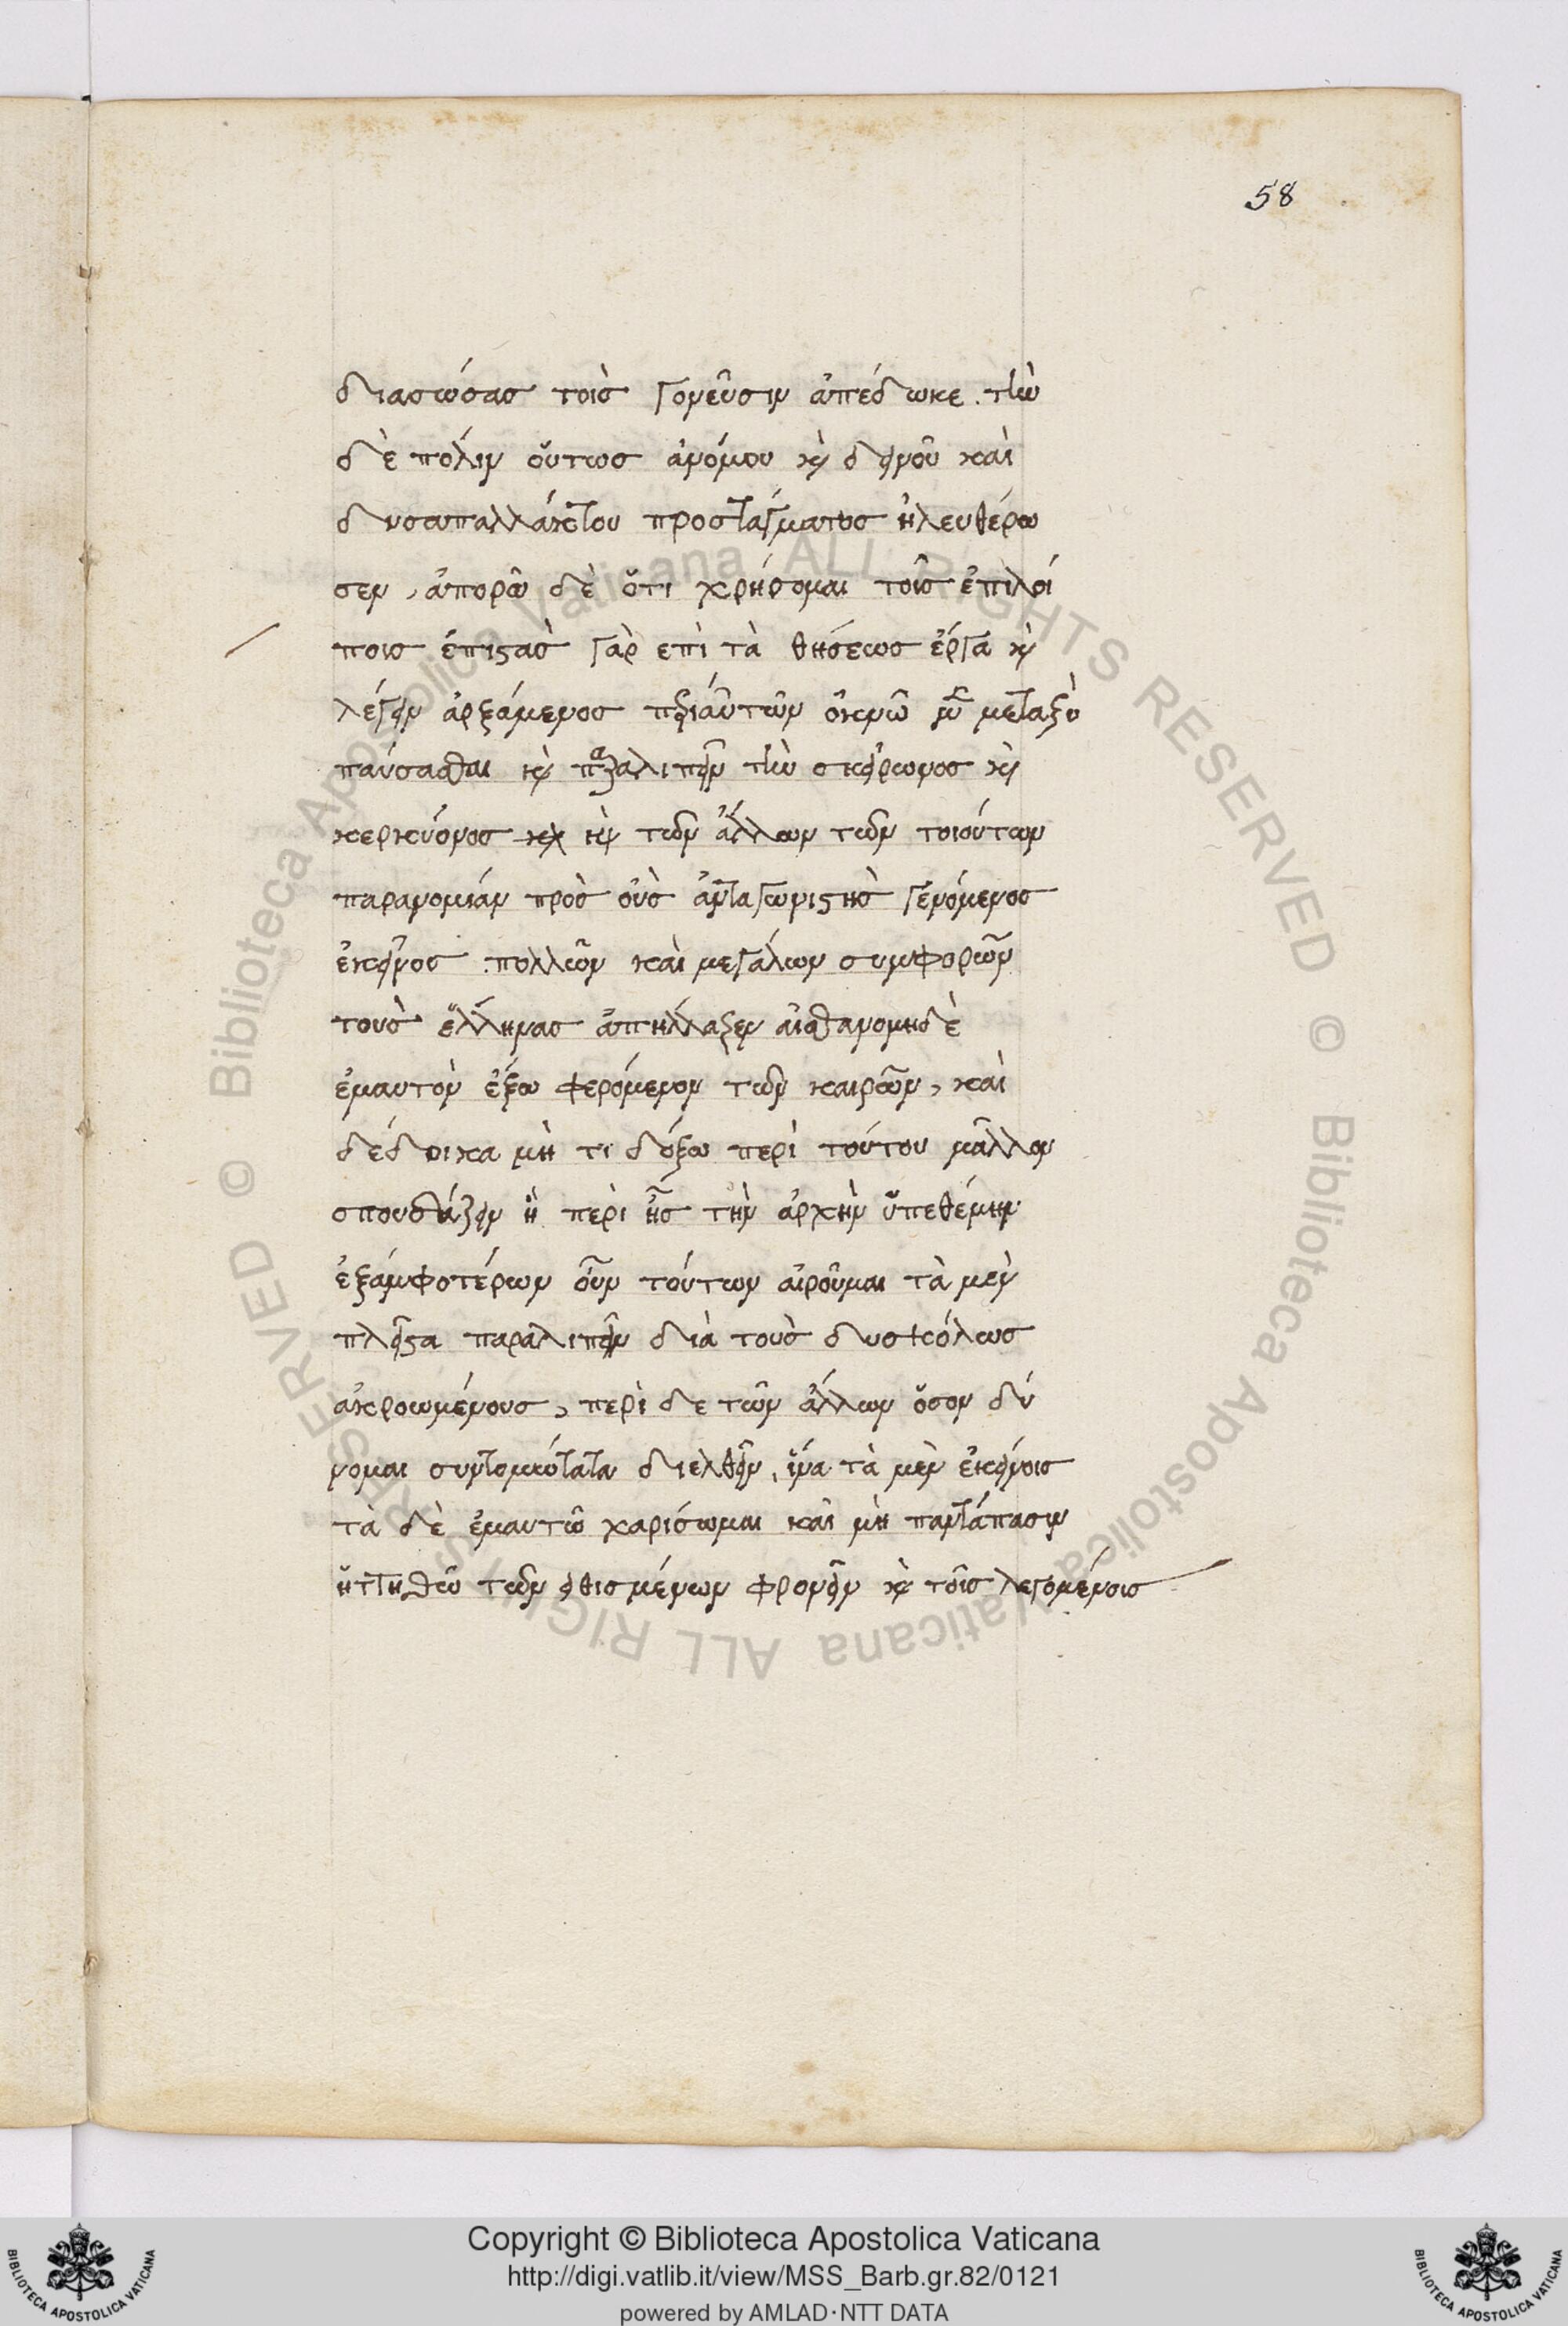 58
διασώσας τοὶς γονεῦσιν ἀπέδωκε. τὴν
δὲ πόλιν οὕτως ἀνόμου κὶ δεινοῦ καὶ
δυσαπαλλάκτου προστάγματος ἠλευθέρω
σεν, ἀπορῶ δὲ ὅτι χρήσομαι τοῖς ἐπιλοί
ποις ἐπιστὰς γὰρ επὶ τὰ θησέως ἔργα κὶ
λέγειν ἀρξάμενος περὶ αὐτῶν ὀκνῶ μὲν μεταξὺ
παύσασθαι κὶ παραλιπεῖν τὴν σκείρωνος κὶ
κερκύονος κὶ τῶν ἄλλων τῶν τοιούτων
παρανομιάν πρὸς οὓς ἀνταγωνιστὴς γενόμενος
ἐκεῖνος πολλῶν καὶ μεγάλων συμφορῶν
τοὺς ἕλληνας ἀπήλλαξεν αἰσθανομηδὲ
ἐμαυτὸν ἔξω φερόμενον τῶν καιρῶν, καὶ
δέδοικα μὴ τι δόξω περὶ τούτου μᾶλλον
σπουδάζειν ἢ περὶ ἧς τὴν ἀρχὴν ὑπεθέμην
ἐξαμφοτέρων οὖν τούτων αἱροῦμαι τὰ μεν
πλεῖστα παραλιπεῖν διὰ τοὺς δυσκόλως
ἀκροωμένους, περὶ δε τῶν ἄλλων ὅσον δύ
νομαι συντομώτατα διελθεῖν, ἵνα τὰ μὲν ἐκείνοις
τὰ δὲ ἐμαυτῶ χαρίσωμαι καὶ μὴ παντάπασιν
ἡττηθῶ τῶν εἰθισμένων φρονεῖν κὶ τοῖς λεγομένοις
Copyright © Biblioteca Apostolica Vaticana
http://digi.vatlib.it/view/MSS_Barb.gr.82/0121
powered by AMLAD·NTT DATA